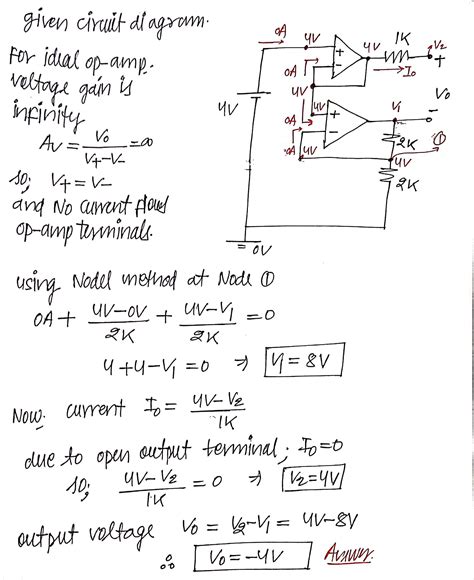 given circuit diagram.
For ideal op-amp.
voltage gain is
infinity
Av = Vo / V+-V- = ∞
so; V+ = V-
and No current flows
op-amp terminals.
0A
4V
4V
1K
V2
+
0A
+
-
Io
4V
4V
Vo
0A
4V
+
-
V1
-
0A
4V
2K
①
4V
2K
0V
using Nodel method at Node ①
0A + 4V-0V / 2K + 4V-V1 / 2K = 0
4+4-V1 = 0 ⇒ V1 = 8V
Now. current Io = 4V-V2 / 1K
due to open output terminal; Io=0
so; 4V-V2 / 1K = 0 ⇒ V2=4V
output voltage Vo = V2-V1 = 4V-8V
∴ Vo = -4V Answer.